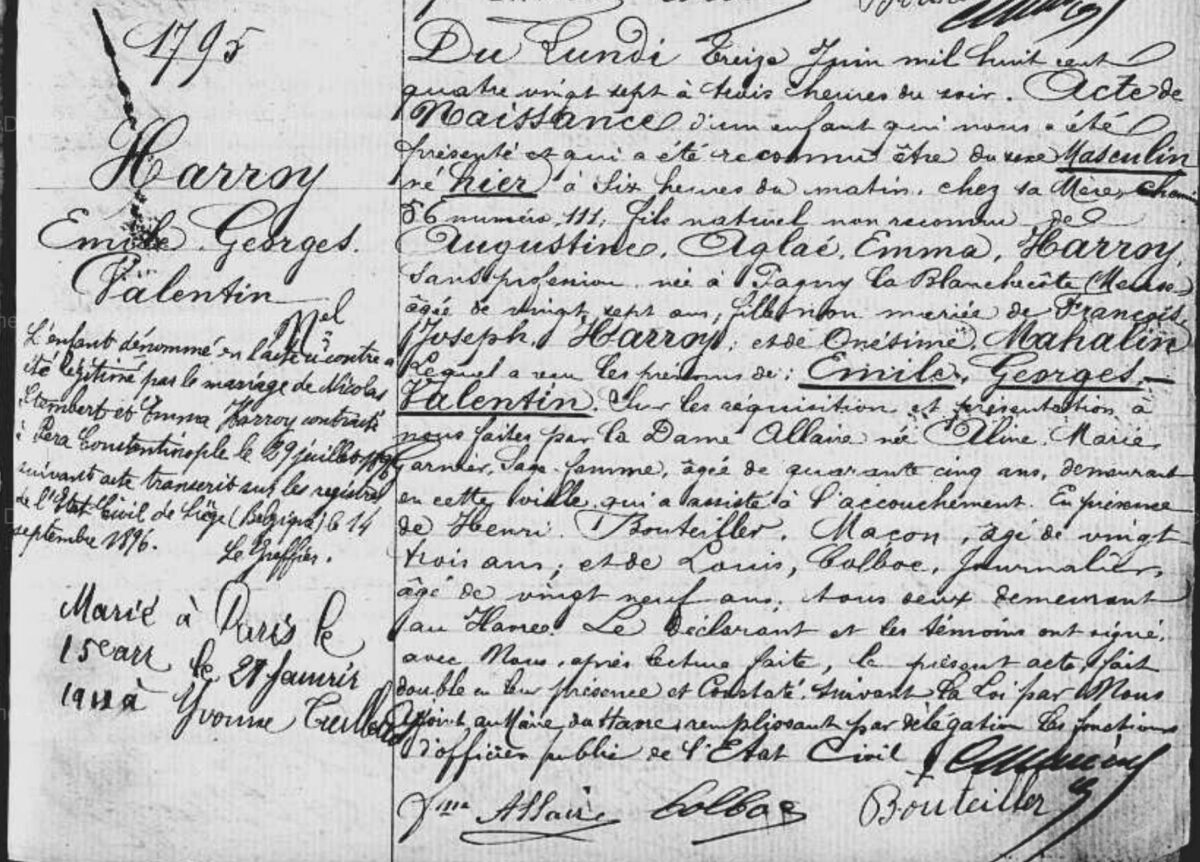 1795
Harroy
Emile Georges.
Valentin
Nel
L'enfant dénommé en l'acte ci contre a
été légitimé par le mariage de Nicolas
Stembert et Emma Harroy contracté
à Pera Constantinople le 29 juillet 1896
suivant acte transcrit sur les registres
de l'Etat Civil de Liège (Belgique) le 14
septembre 1896.
Le Greffier.
Marié à Paris le
15e arr le 27 janvier
à Yvonne
Du Lundi Treize Juin mil huit cent
quatre vingt sept à trois heures du soir. Acte de
Naissance d'un enfant qui nous a été
présenté et qui a été reconnu être du sexe Masculin
né hier à six heures du matin, chez sa Mère,
56 numéro 111, fils naturel non reconnu de
Augustine, Aglaé, Emma, Harroy,
sans profession née à Pagny la Blanchecôte (Meuse
âgée de vingt sept ans, fille non mariée de François
Joseph, Harroy; et de Onésime, Mahalin
Lequel a reçu les prénoms de: Emile, Georges,
Valentin. Sur les réquisition et présentation à
nous faites par la Dame Allaire née Aline, Marie
Garnier, Sage-femme, âgée de quarante cinq ans, demeurant
en cette ville qui a assisté à l'accouchement. En présence
de Henri Bouteiller, Maçon, âgé de vingt
trois ans; et de Louis, Colboc, Journalier,
âgé de vingt neuf ans; tous deux demeurant
au Havre. Le déclarant et les témoins ont signé
avec Nous, après lecture faite, le présent acte, fait
double en leur présence et Constaté suivant la Loi par Nous
Adjoint au Maire du Havre, remplissant par délégation les fonctions
d'officier public de l'Etat Civil
fme Allaire Colboc Bouteiller